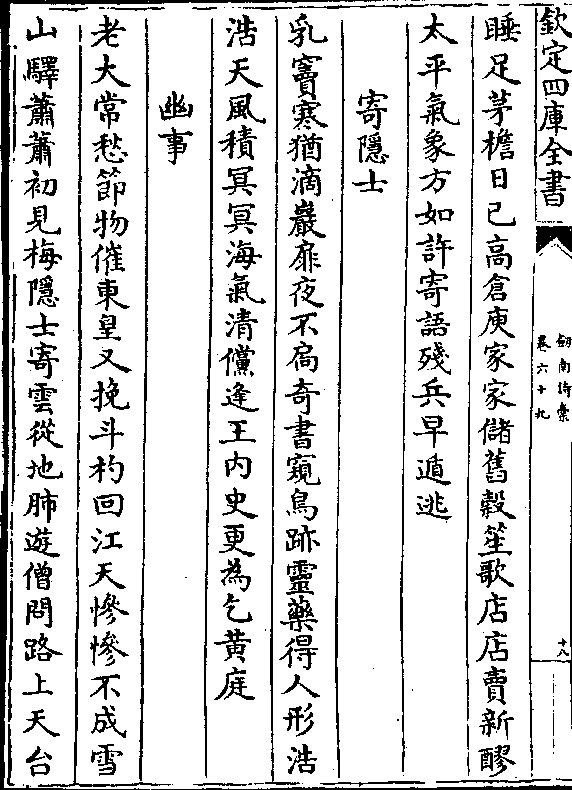 欽定四庫全書
劍南詩槀
卷六十九
十八
睡足茅檐日已高倉庾家家儲舊穀笙歌店店賣新醪
太平氣象方如許寄語殘兵早遁逃
寄隱士
乳竇寒猶滴巖扉夜不扃奇書窺鳥跡靈藥得人形浩
浩天風積冥冥海氣清儻逢王内史更為乞黄庭
幽事
老大常愁節物催東皇又挽斗杓回江天慘慘不成雪
山驛蕭蕭初見梅隱士寄雲從地肺遊僧問路上天台